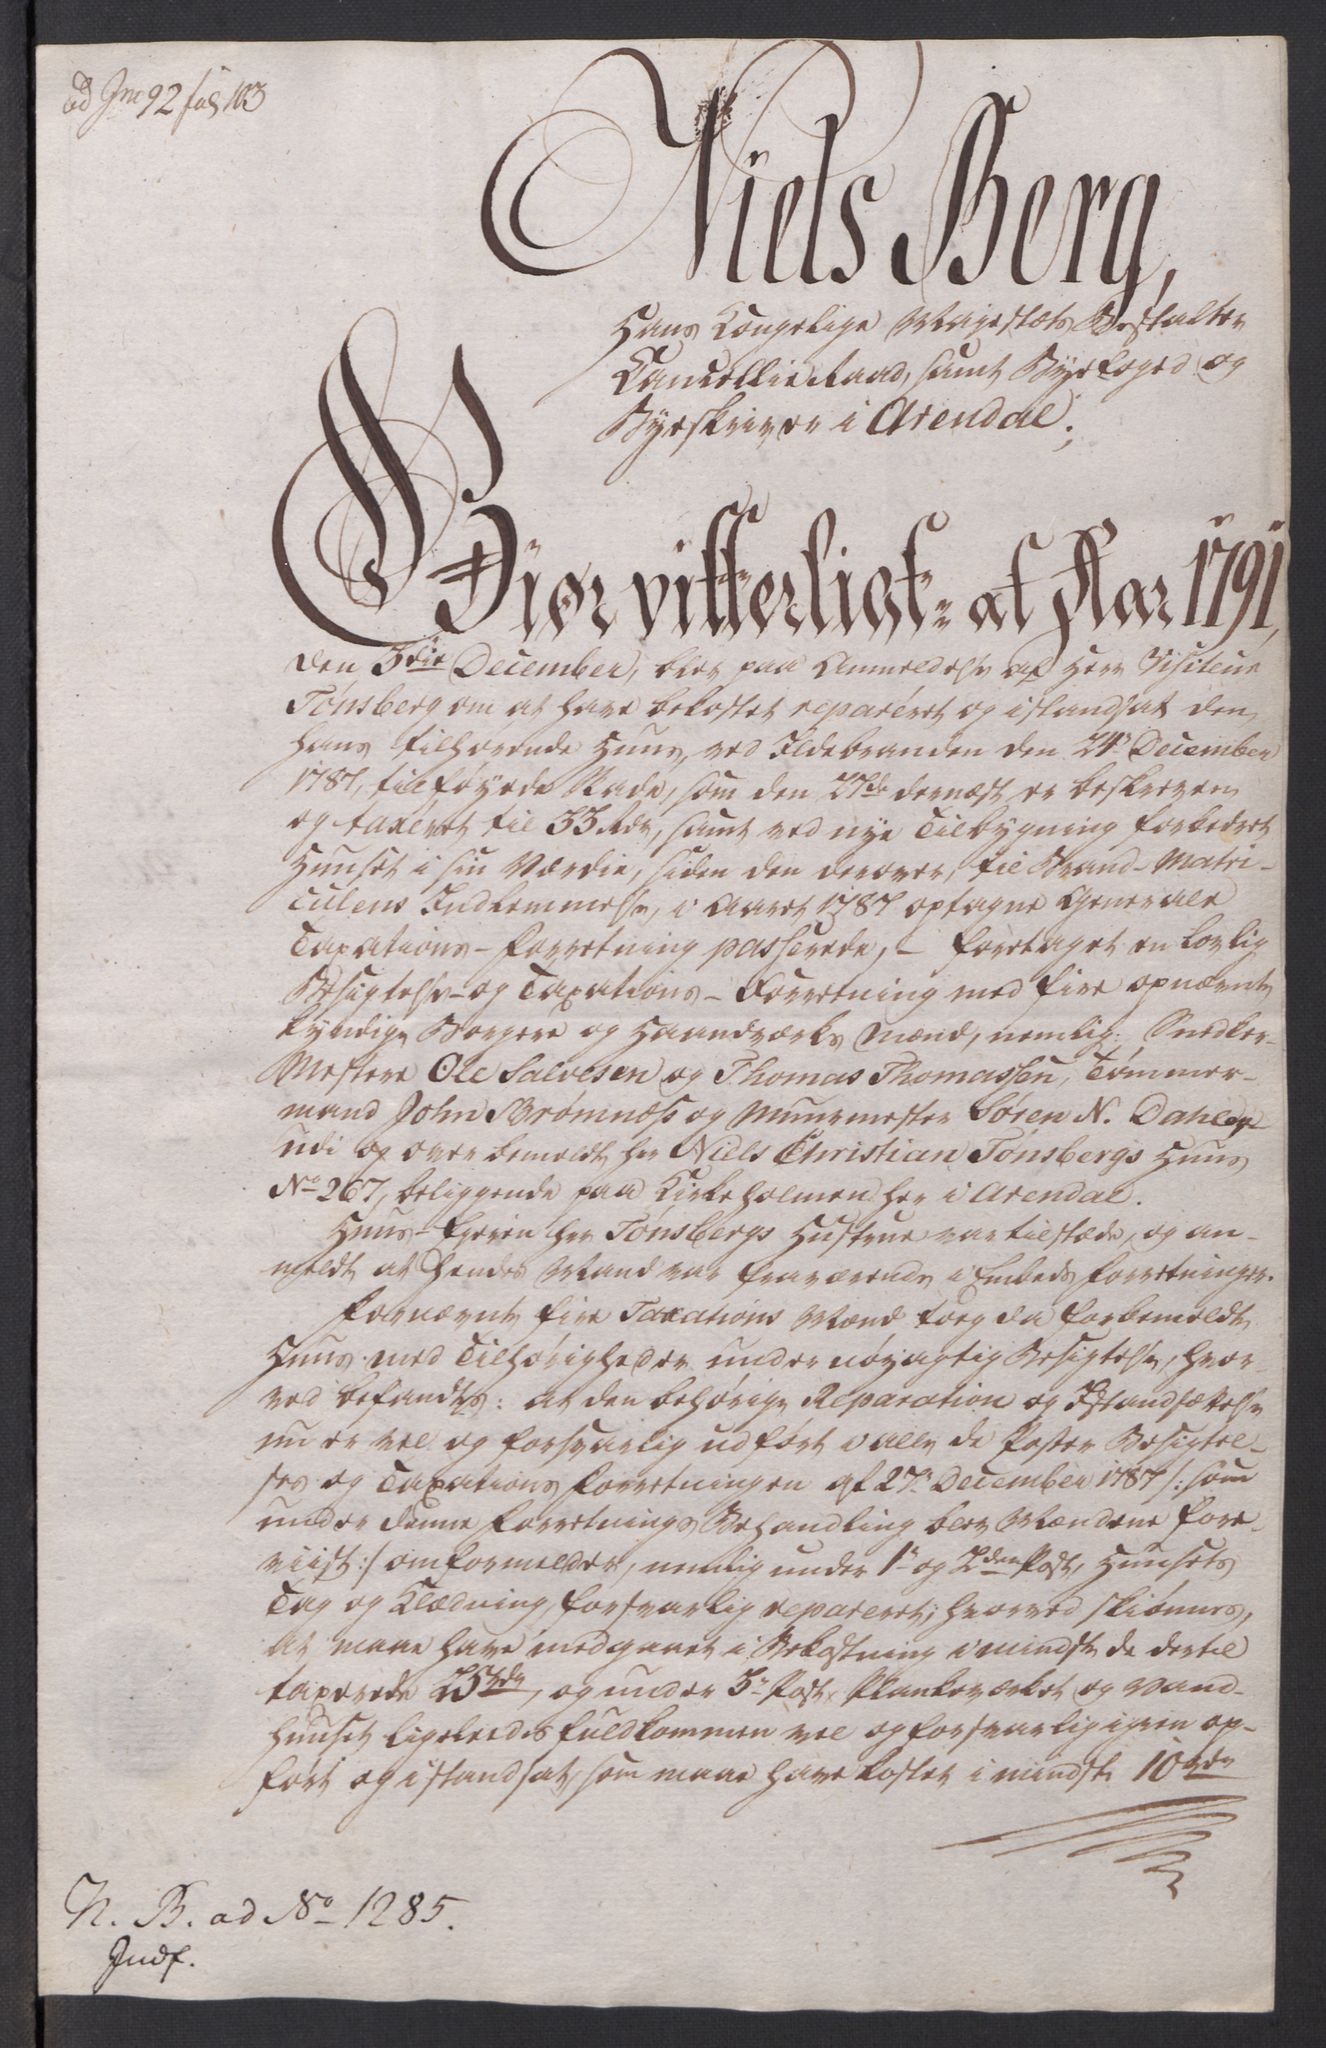 ad Jnr 92 fol 103
Niels Berg,
Hans Kongelige Majestæts Bestalter
Cancellie Raad, samt Byefoged og
Byeskriver i Arendal;
Giør vitterligt at Aar 1791,
den 3die December, blev paa Anmeldelse af Herr Visiteur
Tønsberg om at have bekostet reparéret og istandsat den
hans tilhørende Huus, ved Ildebranden den 24de December
1787, tilføyede Skade, som den 27de dernæst er beskreven
og taxéret til 35 Rdr, samt ved nye Tilbygning forbedret
Huuset i sin Værdie, siden den derover, til Brand-Matri-
culens Indlemmelse, i Aaret 1787 optagne Generale
Taxations-Forretning passerede, - foretaget en lovlig
Besigtelse- og Taxations-Forretning med fire opnævnte
kyndige Borgere og Haandværks Mænd, nemlig: Snedker-
Mestere Ole Salvesen og Thomas Thomassen, Tømmer-
mand John Brømnæss og Muurmester Søren N. Dahler
udi af ovenbemeldte Hr Niels Christian Tønsbergs Huus
No 267, beliggende paa Kirkeholmen her i Arendal.
Huus-Eyeren Hr Tønsbergs Hustrue var tilstæde, og an-
meldte at hendes Mand var fraværende i Embeds Forretninger.
Fornævnte fire Taxations Mænd tog da forbemeldte
Huus med Tilhørigheder under nøyagtig Besigtelse, hvor-
ved befandtes: at den behørige Reparation og Istandsættelse
nu er vel og forsvarlig udført i alle de Poster Besigtel-
ses og Taxations Forretningen af 27de December 1787 /: som
under denne Forretnings Behandling blev Mændene fore-
viist :/ omformelder, nemlig under 1te og 2den Post, Huusets
Tag og Klædning, forsvarlig reparéret; hvorved skiønnes,
at maae have medgaaet i Bekostning i mindste de dertil
taxerede 25 rdr, og under 3de Post Plankeværket og Vand-
huuset ligeledes fuldkommen vel og forsvarlig igien op-
ført og istandsat, som maae have kostet i mindste 10 rdr
N. B. ad No 1285.
Indf.